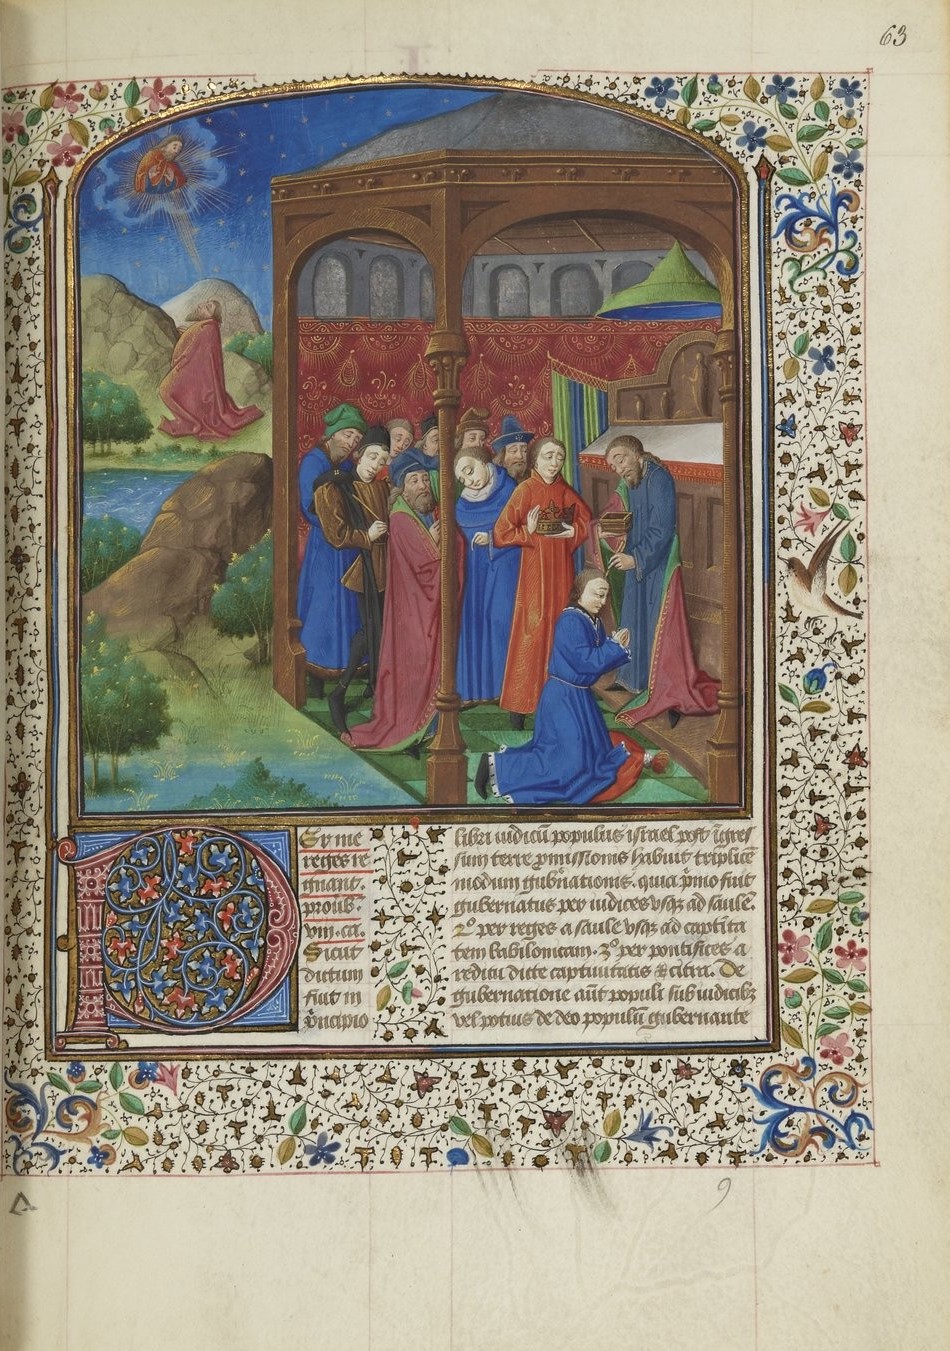 63
Er me
reges re
gnant.
proub.
viii. ca.
Sicut
dictum
fuit in
principio
libri iudicū populus israel post īgres
sum terre ꝓmissionis habuit triplicē
modum gub̄nationis. quia p̄mo fuit
gubernatus per iudices vsqꝫ ad saulē.
2º per reges a saule vsqꝫ ad captiuita
tem babilonicam. 3º per pontifices a
reditu dicte captiuitatis & citra. De
gubernatione aūt populi sub iudicibꝫ
vel potius de deo populū gubernante
9